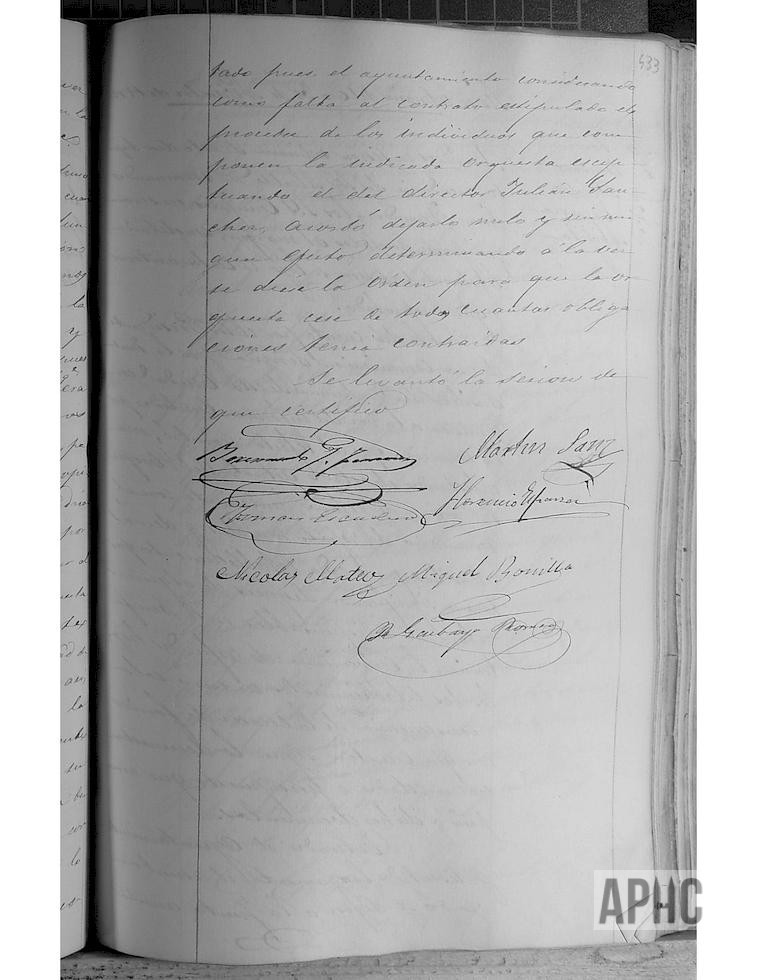 433
tado pues, el ayuntamiento considerando
como falta al contrato estipulado el
proceder de los individuos que com
ponen la indicada orquesta escep
tuando el del director Julián San
chez, acordó dejarlo nulo y sin nin
gun efecto determinando á la vez
se diese la orden para que la or
questa cese de todas cuantas obliga
ciones tenia contraidas
Se levantó la sesion de
que certifico
Martin Sanz
Florencio Esparza
Nicolas Mateo Miguel Bonilla
Garbayo Romeo
APHC